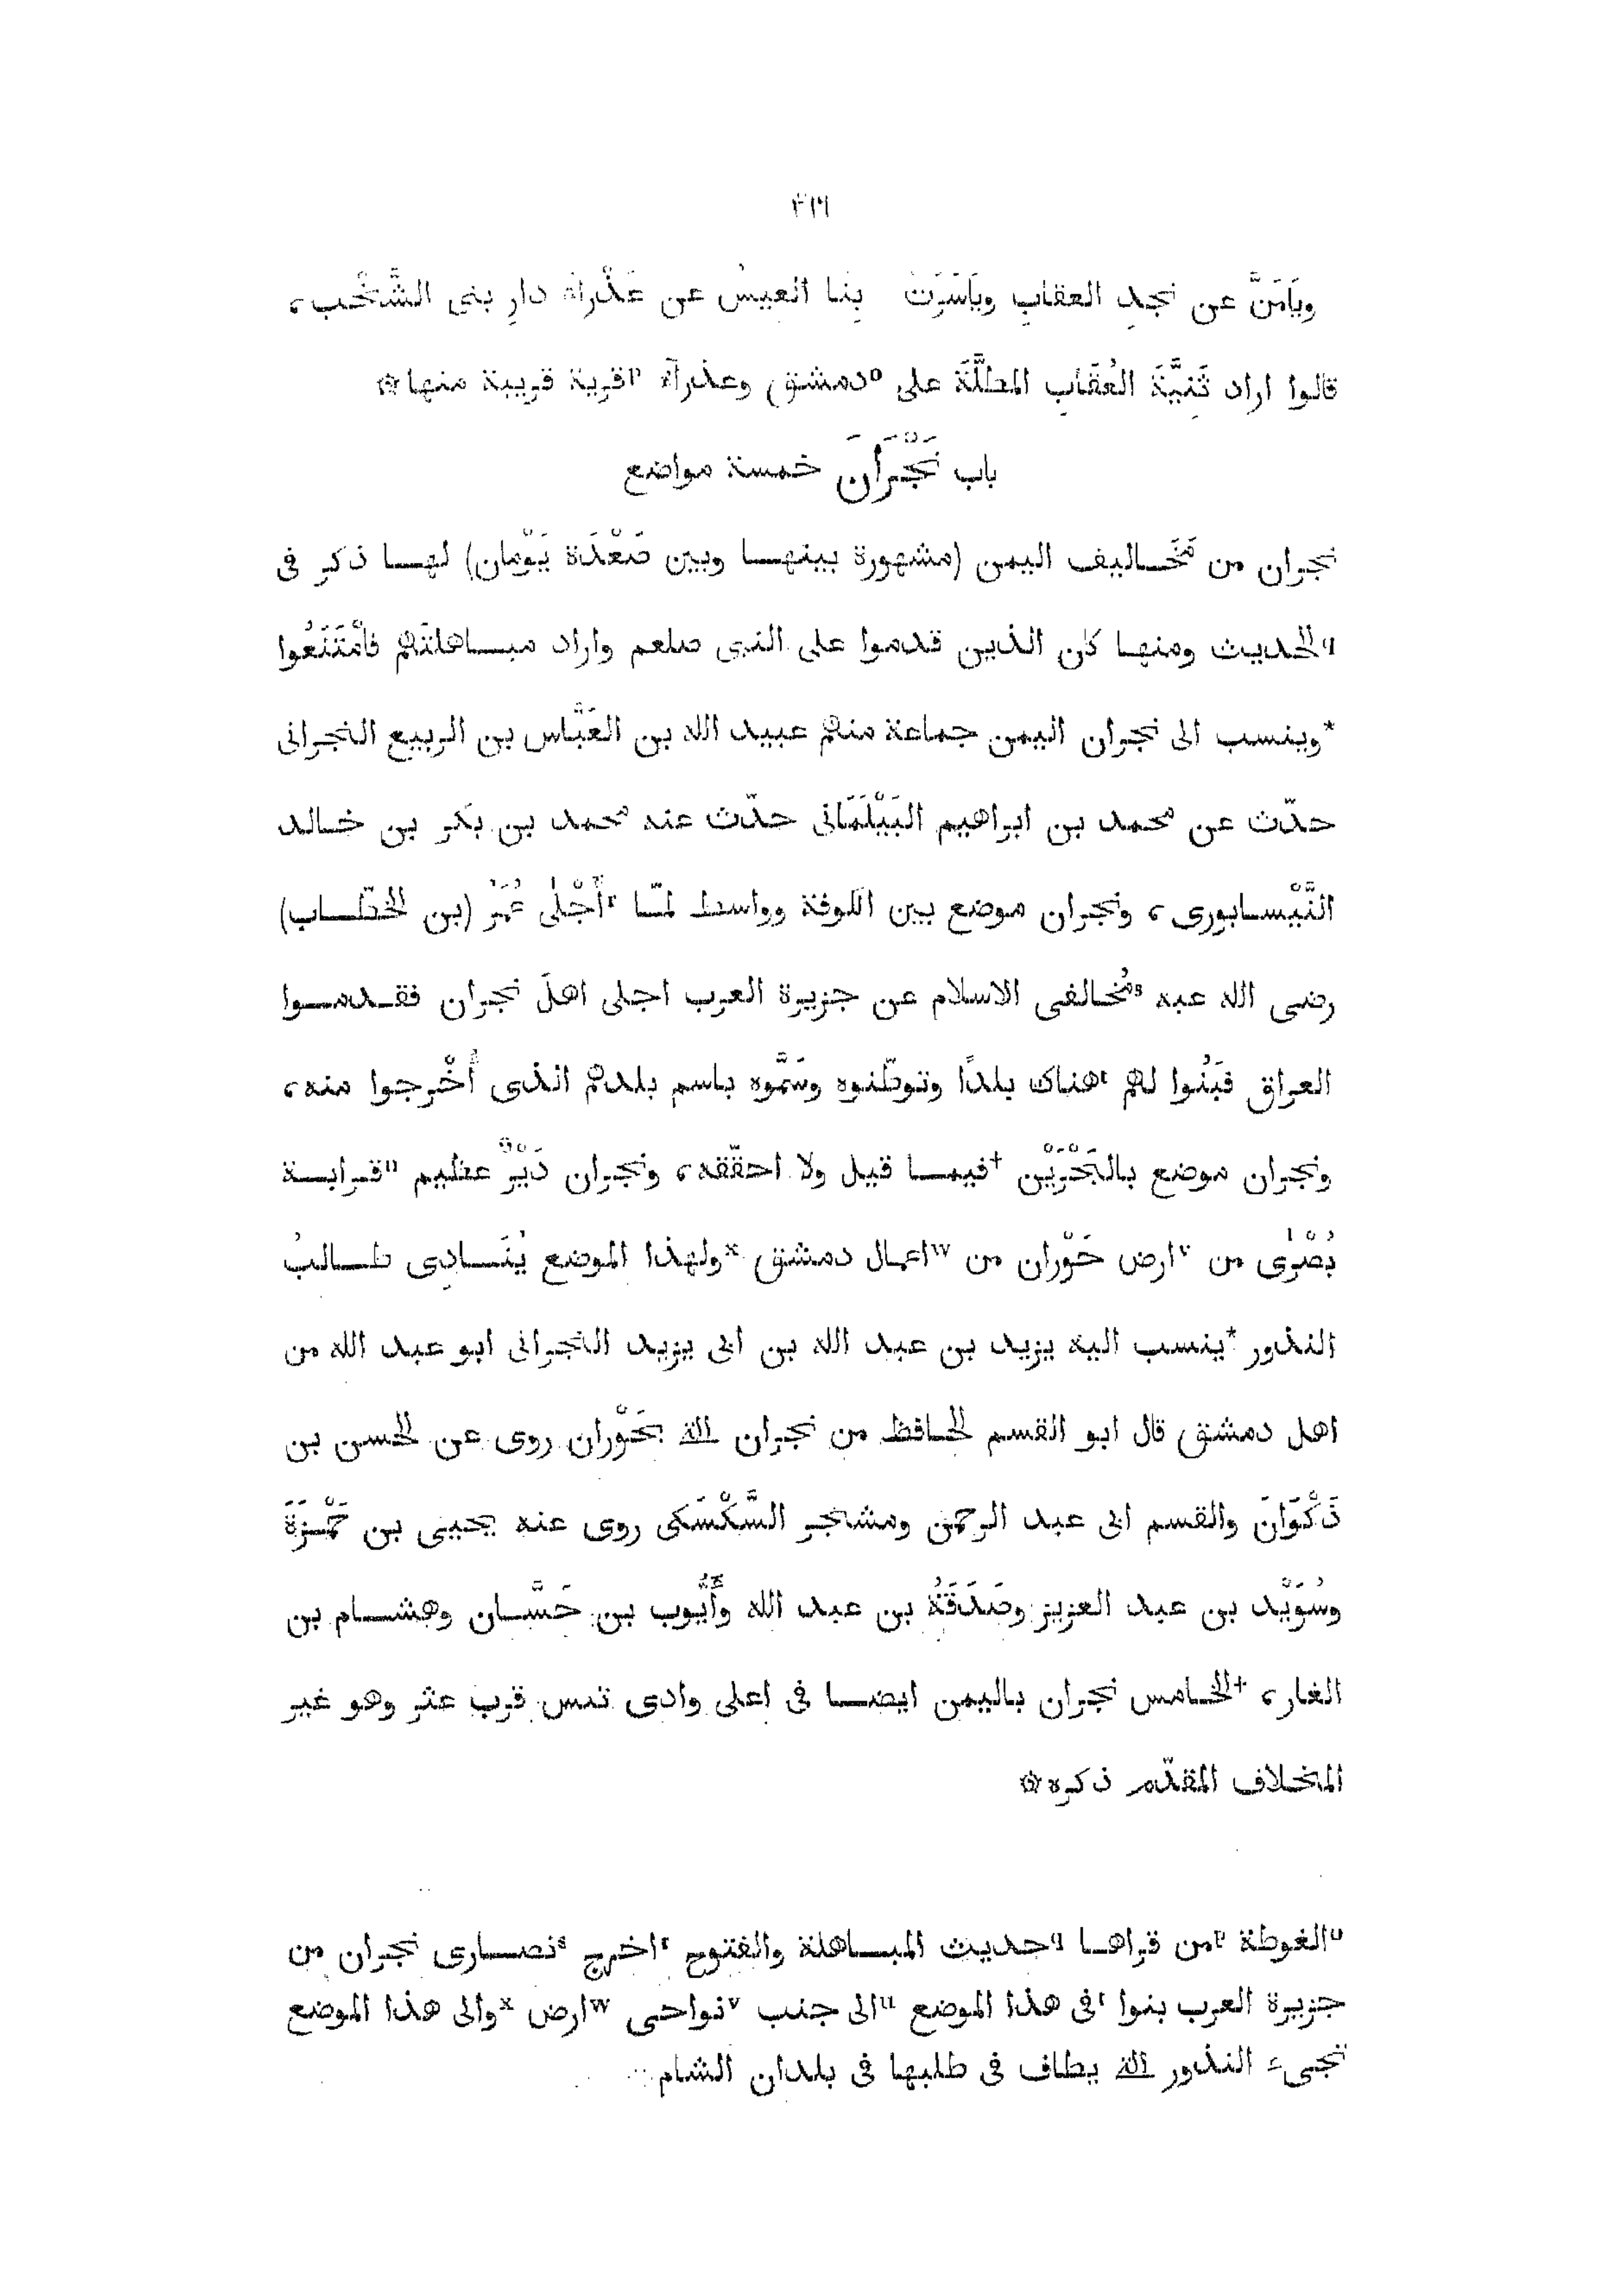 ٤١٦
ويَامَنَّ عن نجدِ العقابِ وياسَرَتْ بِنا العيسُ عن عَذْراءَ دارِ بنى الشَّخْبِ،
قالوا اراد ثَنيَّةَ العُقَابِ المطلَّةَ على ᵒدمشق وعذرآء ᵖقرية قريبة منها۞
باب نَجْرَانَ خمسة مواضع
نجران من مَخَـاليف اليمن (مشهورة بينهـا وبين صَعْدَة يَوْمان) لهـا ذكر فى
ᑫالحديث ومنهـا كان الذين قدموا على النبى صلعم واراد مبـاهلتَهم فامْتَنَعُوا
*وينسب الى نجران اليمن جماعة منهم عبيد الله بن العَبَّاس بن الربيع النجرانى
حدّث عن محمد بن ابراهيم البَيْلَمَانى حدّث عنه محمد بن بَكر بن خـالد
النَّيْسـابورى، ونجران موضع بين الكوفة وواسط لمّـا ʳأَجْلَى عُمَرُ (بن الخطّـاب)
رضى الله عنه ˢمُخـالفى الاسلام عن جزيرة العرب اجلى اهلَ نجران فقـدمـوا
العراق فبَنُوا لهم ᵗهناك بلدًا وتوطّنوه وسَمَّوه باسم بلدهم الذى أُخْرجوا منه،
ونجران موضع بالبَحْرَيْن †فيمـا قيل ولا احقّقه، ونجران دَيْرٌ عظيم ᵘقـرابـة
بُصْرَى من ᵛارض حَوْران من ʷاعمال دمشق ˣولهذا الموضع يُنَـادِى طـالبُ
النذور *ينسب اليه يزيد بن عبد الله بن ابى يزيد النجرانى ابو عبد الله من
اهل دمشق قال ابو القسم الحـافظ من نجران التى بحَوْران روى عن الحسن بن
ذَكْوَانَ والقسم ابى عبد الرحمن ومشاجر السَّكْسَكى روى عنه يحيى بن حَمْـزَةَ
وسُوَيْد بن عبد العزيز وصَدَقَةُ بن عبد الله وأَيُّوب بن حَسَّـان وهشـام بن
الغار، †الخـامس نجران باليمن ايضـا فى اعلى وادى تنس قرب عثر وهو غير
المخلاف المقدّم ذكره۞
ᵒالغوطة ᵖمن قراهـا ᑫحديث المبـاهلة والفتوح ʳاخرج ˢنصـارى نجران من
جزيرة العرب بنوا ᵗفى هذا الموضع ᵘالى جنب ᵛنواحى ʷارض ˣوالى هذا الموضع
تجىء النذور التى يطاف فى طلبها فى بلدان الشام